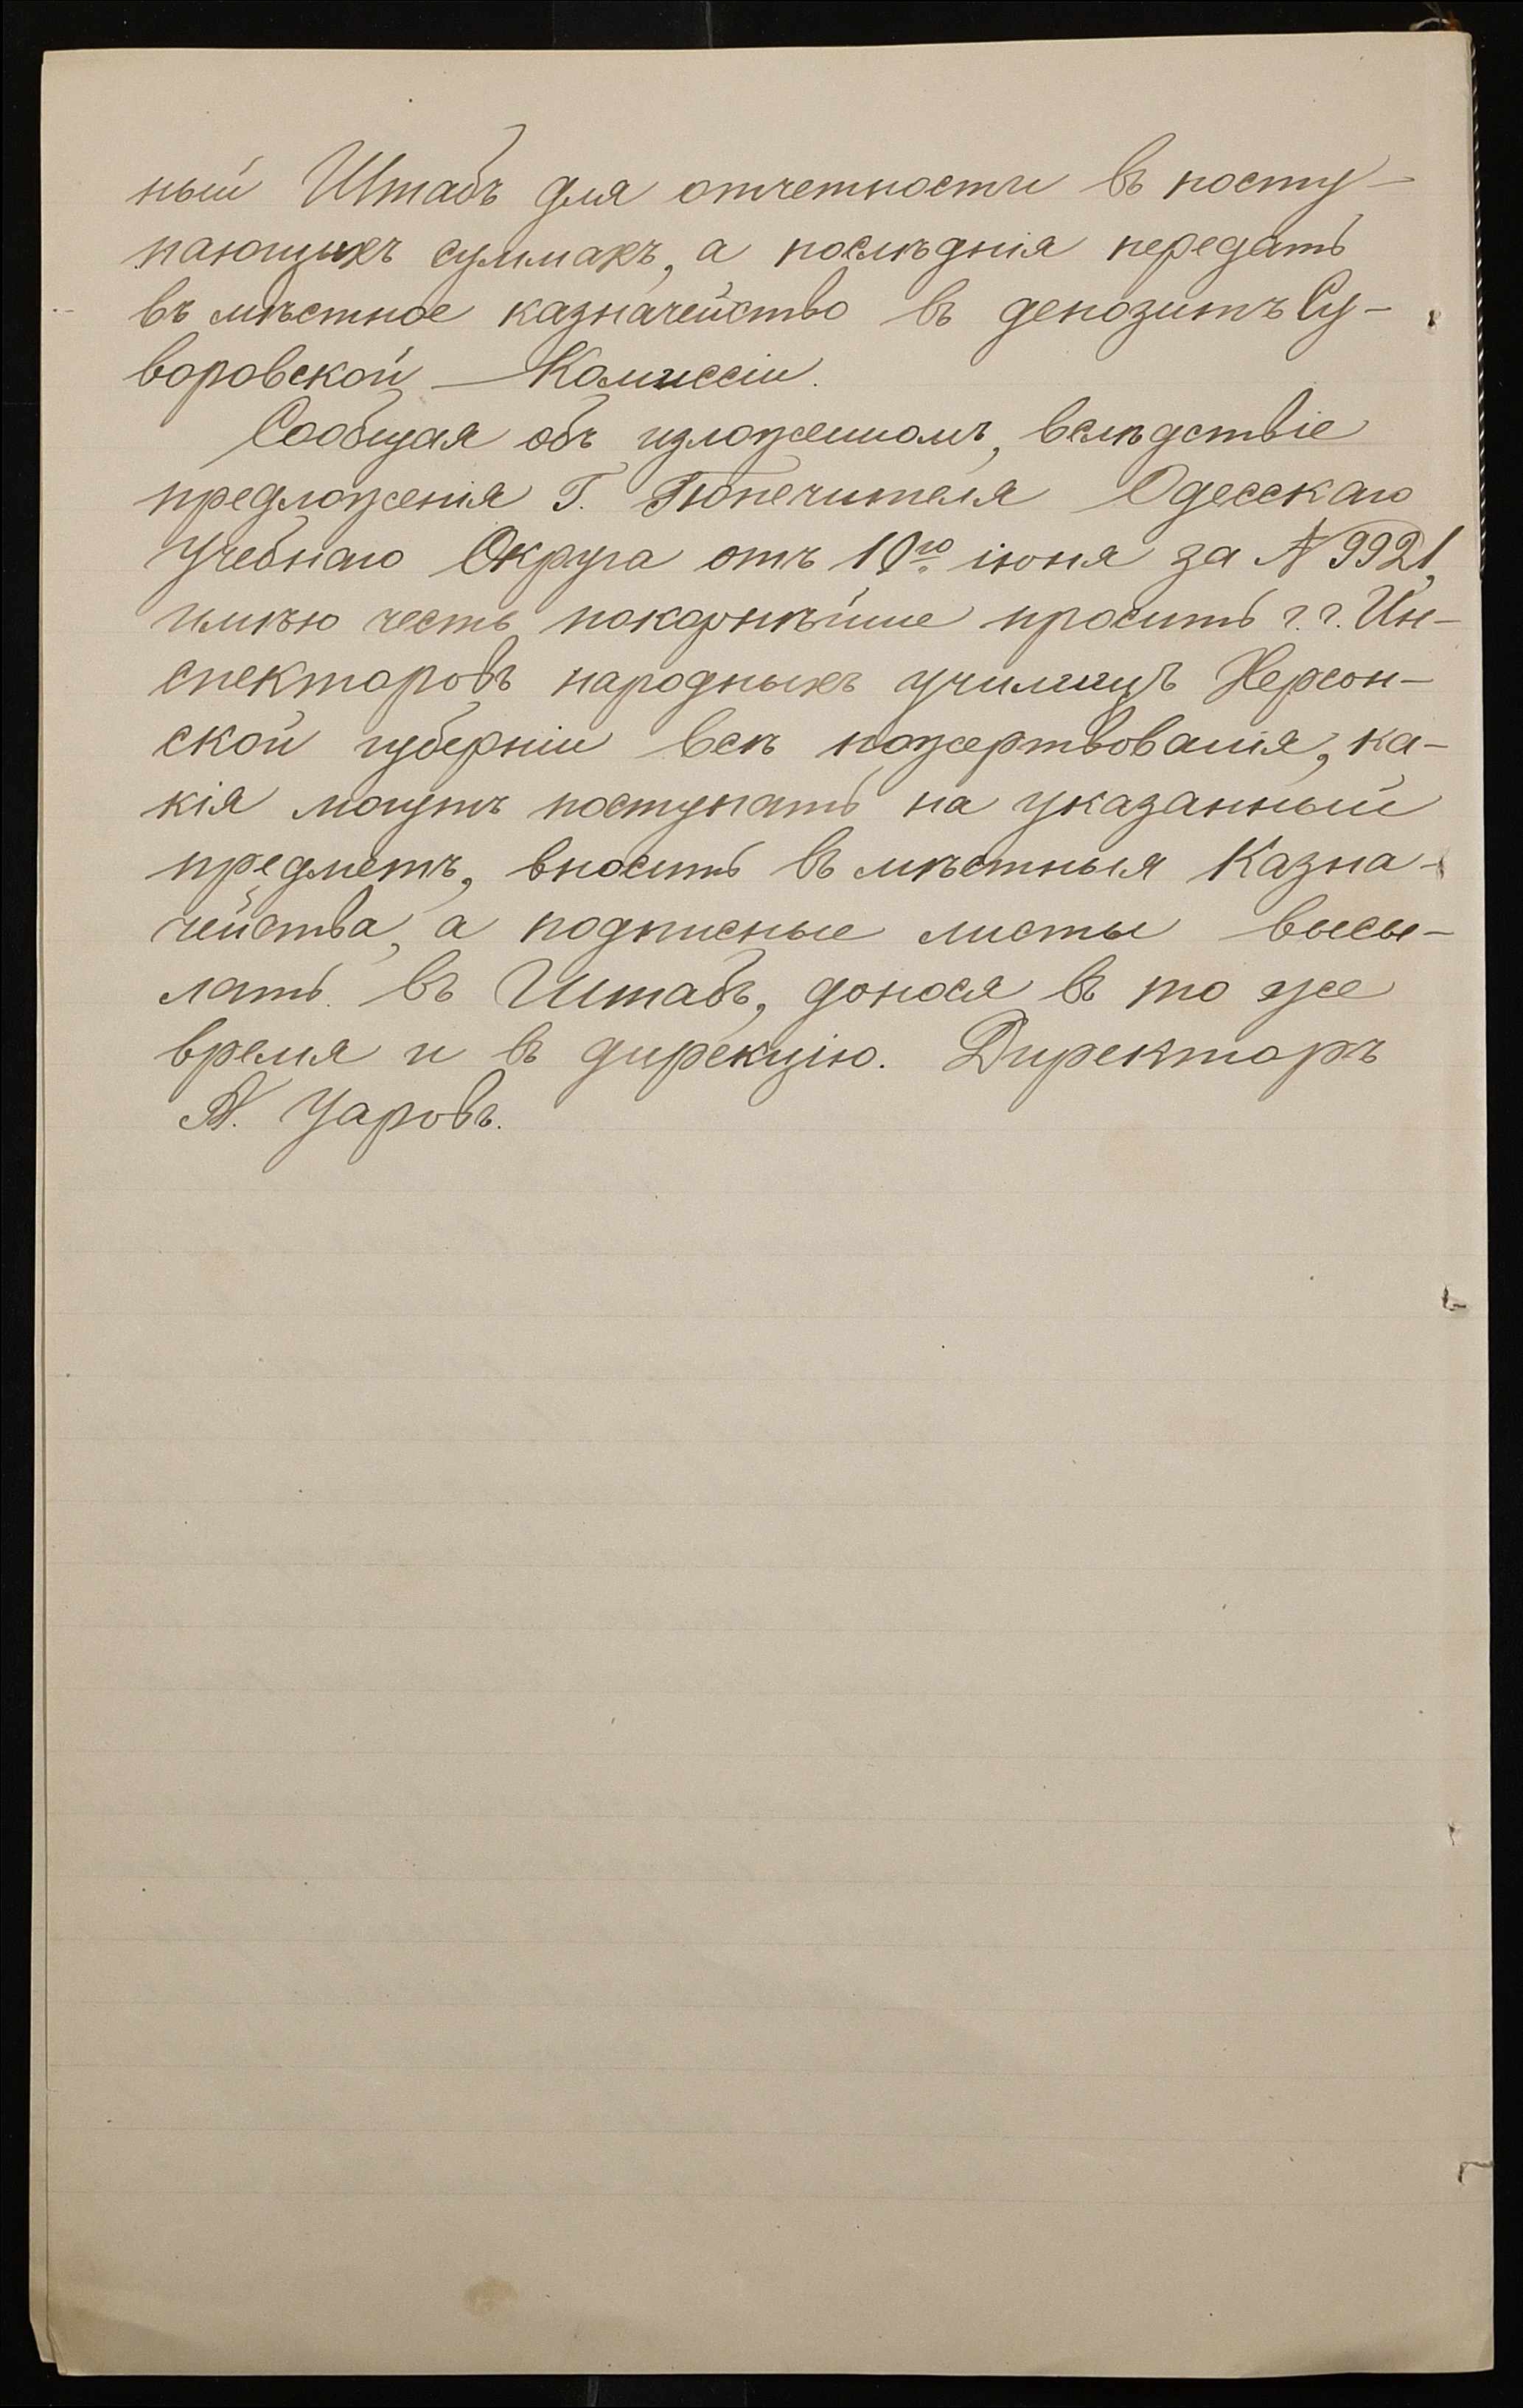 ный Штабъ для отчетности въ посту-
пающихъ суммахъ, а послѣднія передать
въ мѣстное казначейство въ депозитъ Су-
воровской Комиссіи.
Сообщая объ изложенномъ, вслѣдствіе
предложенія Г. Попечителя Одесскаго
Учебнаго Округа отъ 10го іюня за № 9921,
имѣю честь покорнѣйше просить г.г. Ин-
спекторовъ народныхъ училищъ Херсон-
ской губерніи всѣ пожертвованія, ка-
кія могутъ поступать на указанный
предметъ, вносить въ мѣстныя Казна-
чейства, а подписные листы высы-
лать въ Штабъ, донося въ то же
время и въ дирекцію. Директоръ
А. Уаровъ.